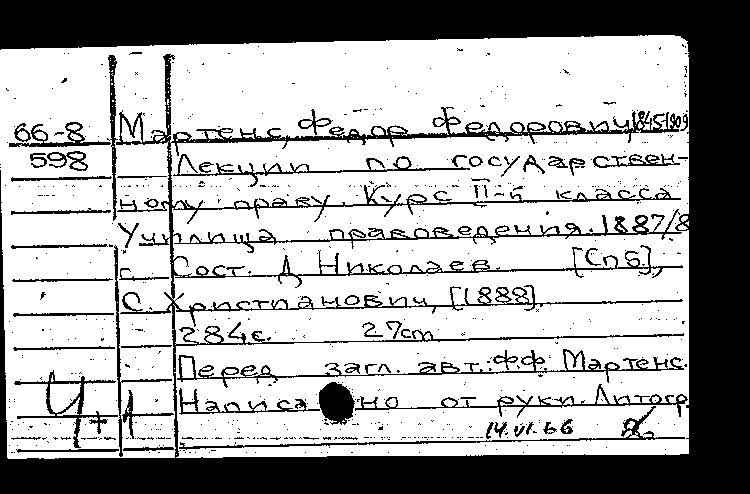 66-8 Мартенс, Федор Федорович, 1845-1909
598 Лекции по государствен-
ному праву. Курс II-й класса
Училища правоведения. 1887/8
г. Сост. Д Николаев. [Спб],
С. Христианович, [1888].
284с. 27cm
Перед загл. авт.: Ф.Ф. Мартенс.
Написано от руки. Литогр.
Ч+1
14.VI.66